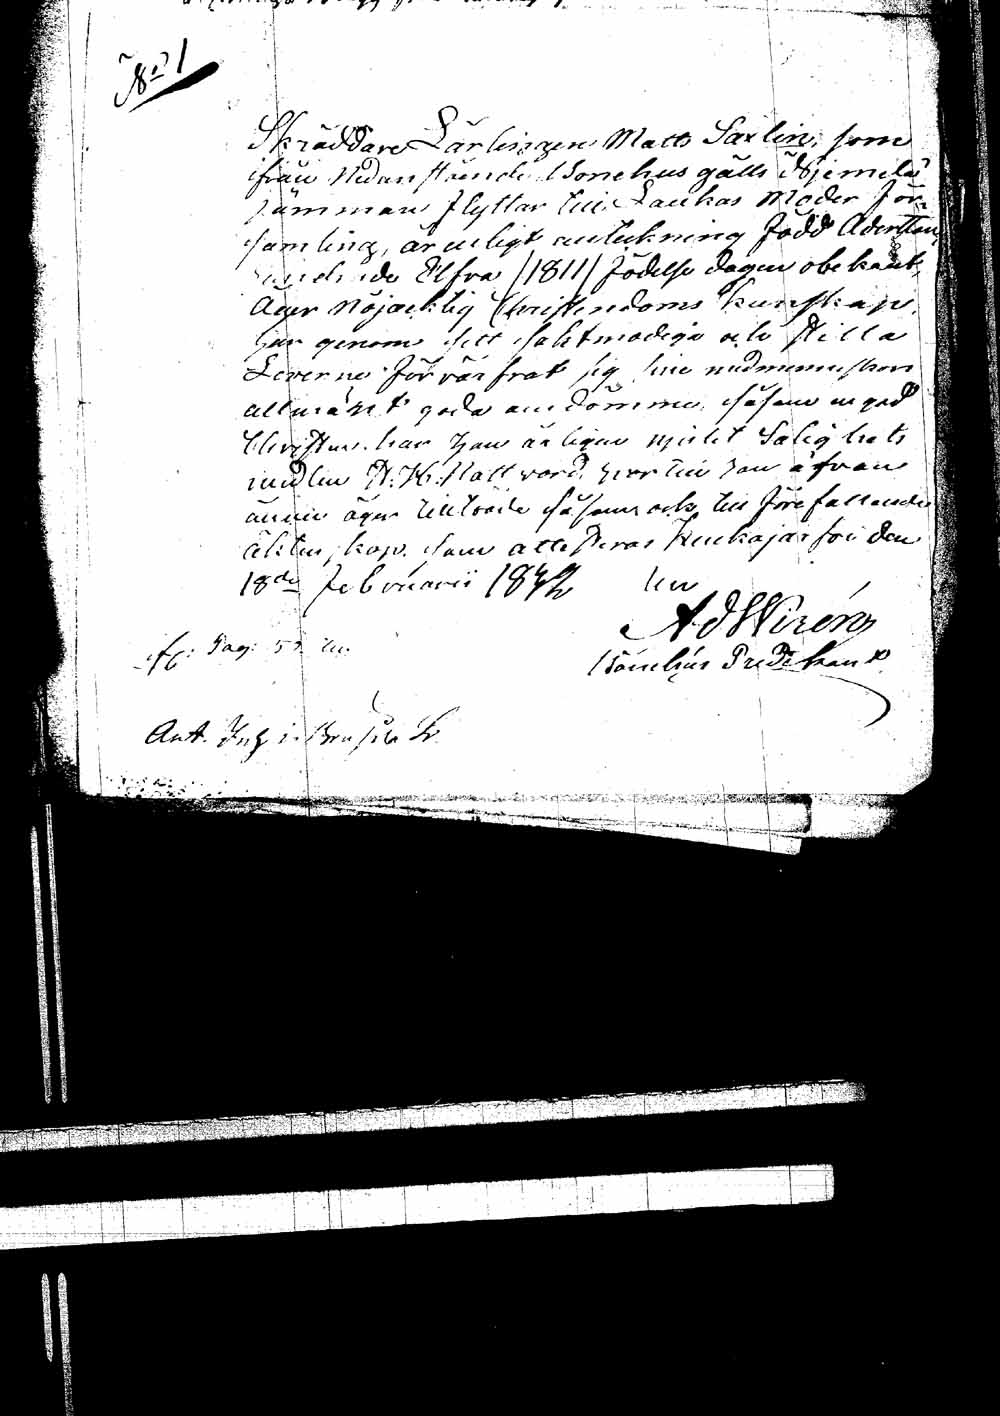 N:o 1
Skräddare Lärlingen Matts Saxlin, som
ifrån nedanstående Bönehus gälls
Flyttar till Laukas Moder För-
samling, är enligt anteckning Född Adertton
hundrade Elfva /1811/ Födelse dagen obekant,
Äger Nöjacktig Christendoms kunskap,
har genom sitt saktmodiga och stilla
Leverne förvärfvat sig sine medmenniskors
allmänt goda omdömme, såsom en god
Christen har han ärligen njutit Salighets
medlen H. H. Nattvard, hvartill han äfven
ännu äger tillträde såsom ock till förefallande
äktenskap. Som attesteras ifrån den
18de Februarii 1842
A d Wirén
Bönehus Predikant
Pag: 52
Ant. Infl: